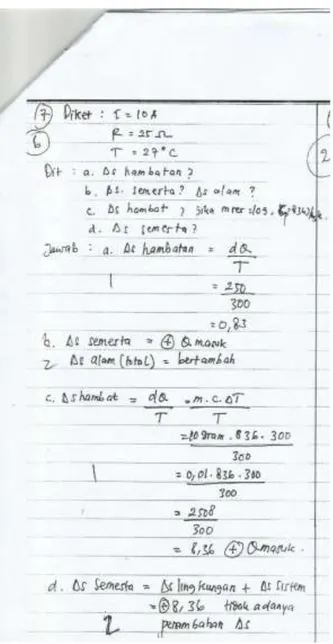 7 Diket : I = 10A
6 R = 25 Ω
T = 27°C
Dit : a. Δs hambatan ?
b. Δs. semesta? Δs alam ?
c. Δs hambat ? jika mres = 10g, =836J/kg.k.
d. Δs semesta ?
Jawab : a. Δs hambatan = dQ
T
1 = 250
300
= 0,83
b. Δs semesta = + Q masuk
2 Δs alam (total) = bertambah
c. Δs hambat = dQ = m.c.ΔT
T T
= 10 gram . 836 . 300
300
1 = 0,01 . 836 . 300
300
= 2508
300
= 8,36 + Q masuk.
d. Δs Semesta = Δs lingkungan + Δs sistem
= + 8,36 tidak adanya
2 perambahan Δs
2